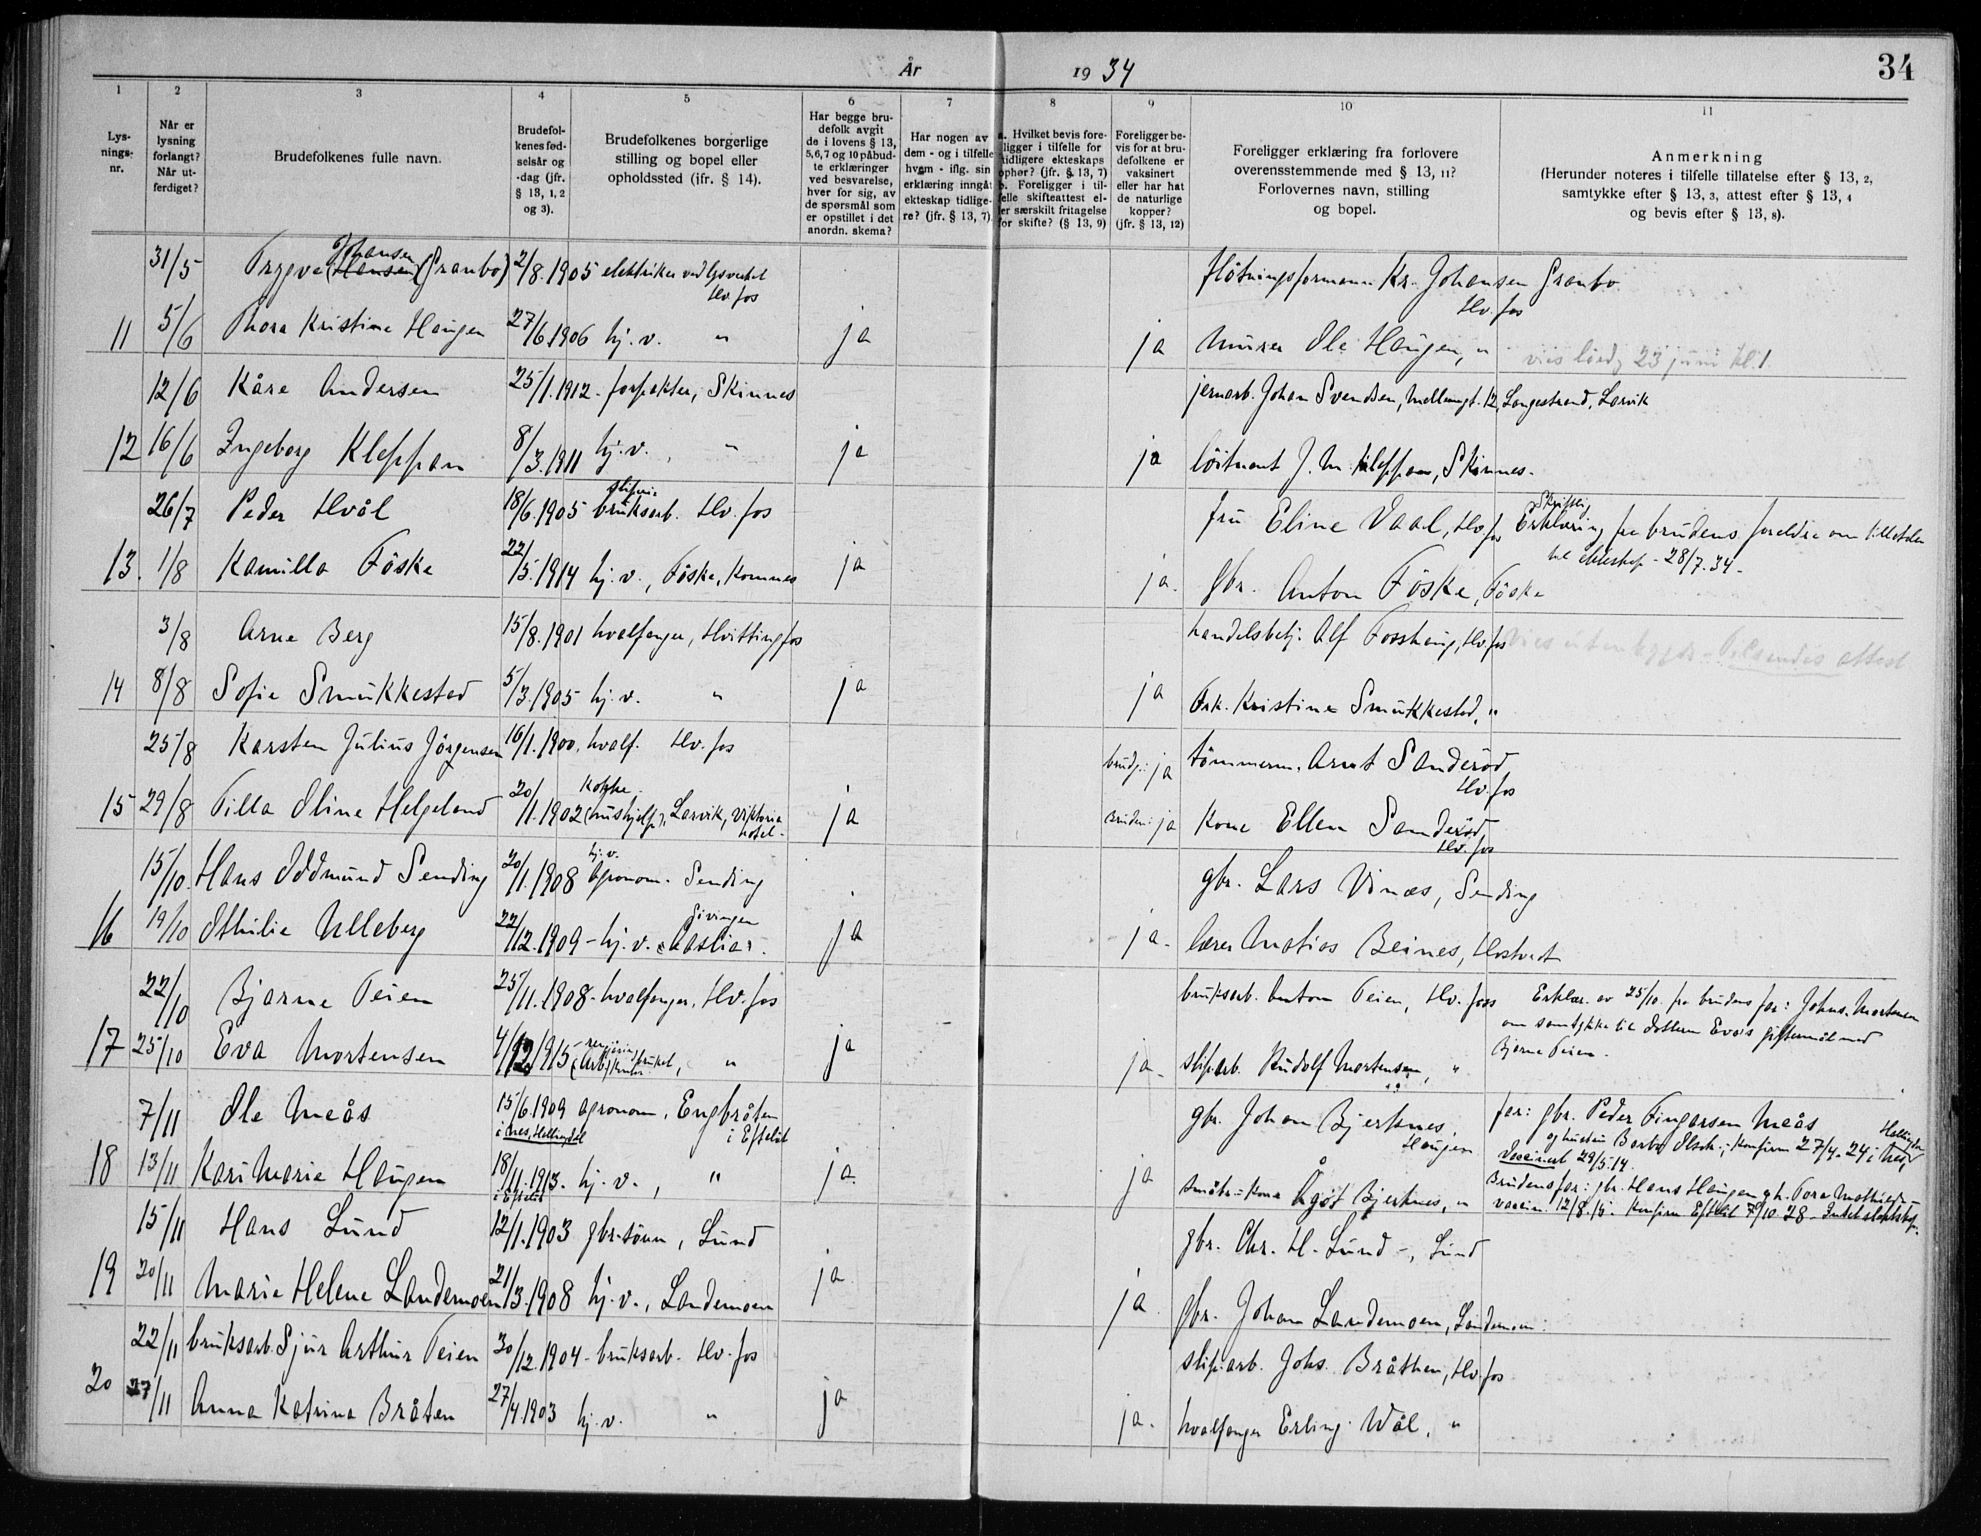 År 1934
34
1 2 3 4 5 6 7 8 9 10 11
Lys-
nings-
nr.
Når er
lysning
forlangt?
Når ut-
ferdiget?
Brudefolkenes fulle navn.
Brudefol-
kenes fød-
selsår og
-dag (jfr.
§ 13, 1, 2
og 3).
Brudefolkenes borgerlige
stilling og bopel eller
opholdssted (ifr. § 14).
Har begge bru-
defolk avgit
de i lovens § 13,
5,6,7 og 10 påbud-
te erklæringer
ved besvarelse,
hver for sig, av
de spørsmål som
er opstillet i det
anordn. skema?
Har nogen av
dem - og i tilfelle
hvem - iflg. sin
erklæring inngåt
ekteskap tidlige-
re? (jfr. § 13, 7)
a. Hvilket bevis fore-
ligger i tilfelle for
tidligere ekteskaps
ophør? (jfr. § 13, 7)
b. Foreligger i til-
felle skifteattest el-
ler særskilt fritagelse
for skifte? (§ 13, 9)
Foreligger be-
vis for at bru-
defolkene er
vaksinert
eller har hat
de naturlige
kopper?
(jfr. § 13, 12)
Foreligger erklæring fra forlovere
overensstemmende med § 13, 11?
Forlovernes navn, stilling
og bopel.
Anmerkning
(Herunder noteres i tilfelle tillatelse efter § 13, 2,
samtykke efter § 13, 3, attest efter § 13, 4
og bevis efter § 13, 8).
Johansen
31/5 Trygve (Hansen) (Granbo) 2/8.1905 elektriker ved lysverket Hv.fos fløtningsformann Kr. Johansen Granbo Hv.fos
11 5/6 Thora Kristine Haugen 27/6.1906 hj.v. " ja ja murer Ole Haugen, " vies lørdg 23 juni kl. 1
12/6 Kåre Andersen 25/1.1912. forpakter, Skinnes jernarb. Johan Svendsen, Mellomgt. 12, Langestrand, Larvik
12 16/6 Ingeborg Kleppan 8/3.1911 hj.v. " ja ja løitnant J. M. Kleppan, Skinnes.
26/7 Peder Hvål 18/6.1905 sliperi bruksarb. Hv.fos fru Eline Vaal, Hv.fos Skriftlig Erklæring fra brudens foreldre om tillatelse
til ekteskap - 28/7.34 -
13. 1/8 Kamilla Føske 22/5.1914 hj.v., Føske, Komnes ja ja. gbr. Anton Føske, Føske
3/8 Arne Berg 15/8.1901 hvalfanger, Hvittingfos handelsbetj. Alf Fosshaug, Hv.fos Vies utenbygds - Tilsendes attest
14 8/8 Sofie Smukkestad 5/3.1905 hj.v. " ja ja Frk. Kristine Smukkestad, "
25/8 Karsten Julius Jørgensen 16/1.1900. hvalf. Hv.fos brudg.: ja tømmerm. Arnt Sanderød Hv.fos
15 29/8 Tilla Oline Helgeland 20/1.1902 Kokke (hushjelp), Larvik, Viktoria hotel - ja bruden: ja Kone Ellen Sanderød Hv.fos
15/10 Hans Oddmund Sending 20/1.1908 hj.v. agronom. Sending gbr. Lars Vinæs, Sending
16 19/10 Othilie Ulleberg 22/12.1909 - hj.v. ja ja. lærer Matias Beines, Hostvedt
22/10 Bjarne Teien 25/11.1908 - hvalfanger, Hv.fos bruksarb. Anton Teien, Hv.foss Erklær. av 25/10. fra brudens far: Johns. Mortensen
om samtykke til datteren Eva's giftermål med
Bjarne Teien.
17 25/10 Eva Mortensen 4/12 1915 - ja ja - sliparb. Rudolf Mortensen, "
7/11 Ole Meås 15/6.1909 agronom, Engbråten i Efteløt gbr. Johan Bjerknes, Haugen far: gbr. Peder Fingarsen Meås
i Nes, Hallingdal
og hustru Barbo Olsdt.; konfirm 27/4-24 i Nes, Hallingdal
Vaccinert 29/5.14.
18 13/11 Kari Marie Haugen 18/11.1913. hj.v., " ja ja småbr.-kone Ågot Bjerknes, "
i Efteløt
Brudens far: gbr. Hans Haugen
vaccin. 12/8.15. Konfirm Efteløt 7/10.28 -
15/11 Hans Lund 12/1.1903 gbr-sønn, Lund gbr. Chr. H. Lund -, Lund
19 20/11 Marie Helene Landemoen 21/3.1908 hj.v., Landemoen ja ja. gbr. Johan Landemoen, Landemoen.
22/11 bruksarb. Sjur Arthur Teien 30/12.1904 - bruksarb. Hv.fos sliparb. Johs. Bråthen, Hv.fos
20 27/11 Anna Katrina Bråten 27/4.1903 hj.v. " ja ja. hvalfanger Erling Wål, "